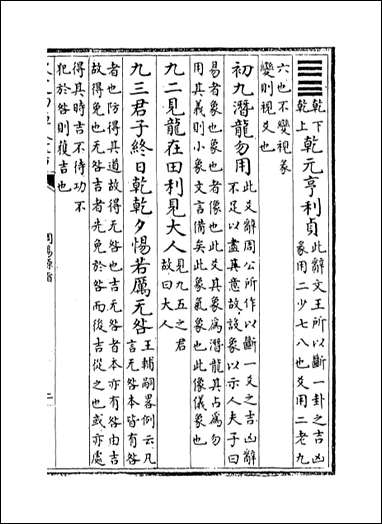 ䷀ 乾下 乾上 乾元亨利貞 此辭文王所以斷一卦之吉凶
彖用二少七八也爻用二老九
六也不變視彖
變則視爻也
初九潛龍勿用 此爻辭周公所作以斷一爻之吉凶辭
不足以盡其意故設象以示人夫子曰
易者象也象也者像也此爻其象為潛龍其占為勿
用其義則小象文言備矣此象氣象也此像儀象也
九二見龍在田利見大人 見九五之君
故曰大人
九三君子終日乾乾夕惕若厲无咎 王輔嗣畧例云凡
言无咎本皆有咎
者也防得其道故得无咎也吉无咎者本亦有咎由吉
故得免也无咎吉者先免於咎而後吉從之也或亦處
得其時吉不待功不
犯於咎則獲吉也
周易
二